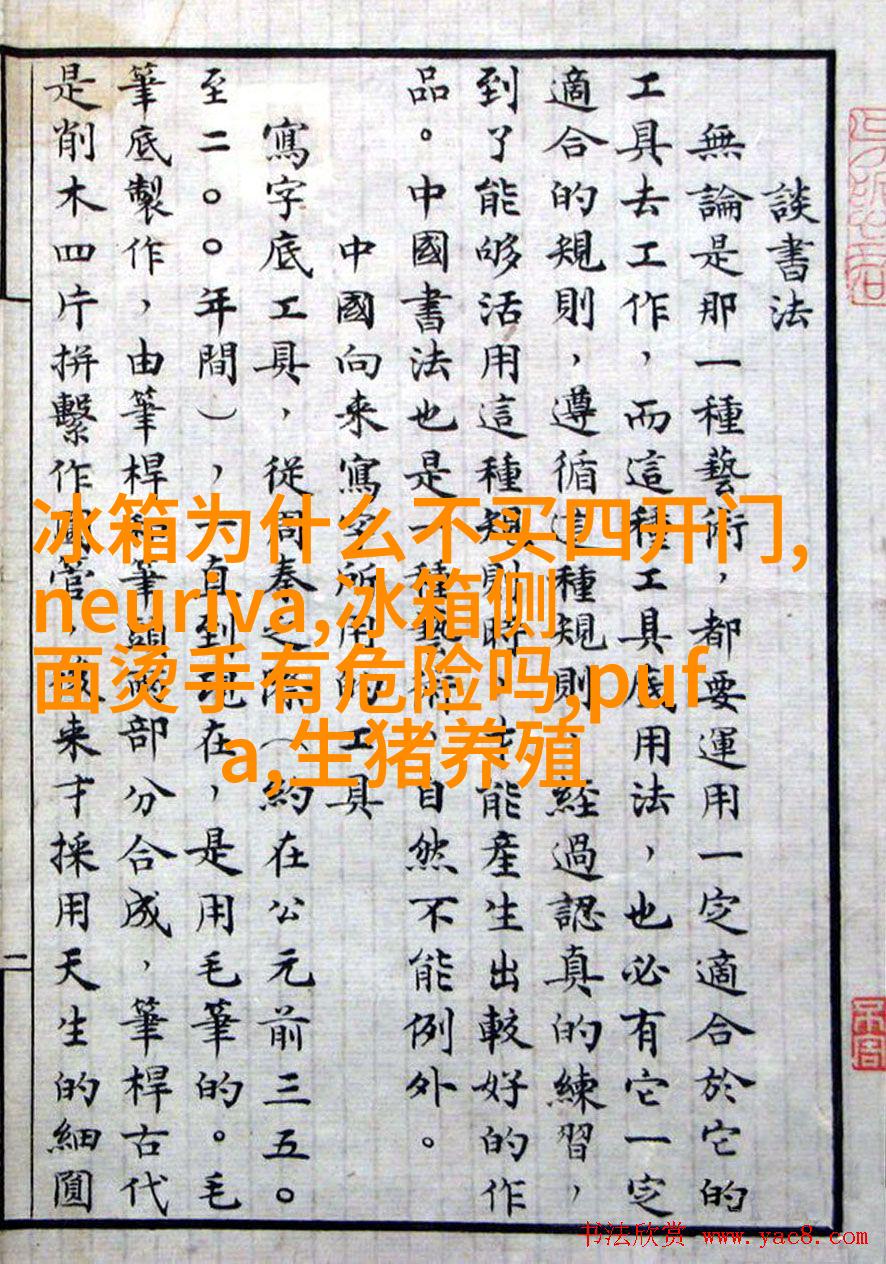 談書法
無論是那一種藝術，都要運用一定適合於它的
工具去工作，而這種工具底用法，也必有它一定
適合的規則，遵循這種規則、經過認真的練習，
到了能够活用這種規則時、才能產生出較好的作
品。中國書法也是一種藝術、自然不能例外。
中國向来寫字所用的工具
寫字底工具，從周秦之際（約在公元前三五〇
至二〇〇年間），一直到現在，是用毛筆的。毛
筆底製作，由筆桿和筆頭部分合成，筆桿古代
是削木四片拼繫作圓管，後来才採用天生的細圓
二
冰箱为什么不买四开门,
neuriva,冰箱侧
面烫手有危险吗,puf
a,生猪养殖
书法欣赏 www.yac8.com